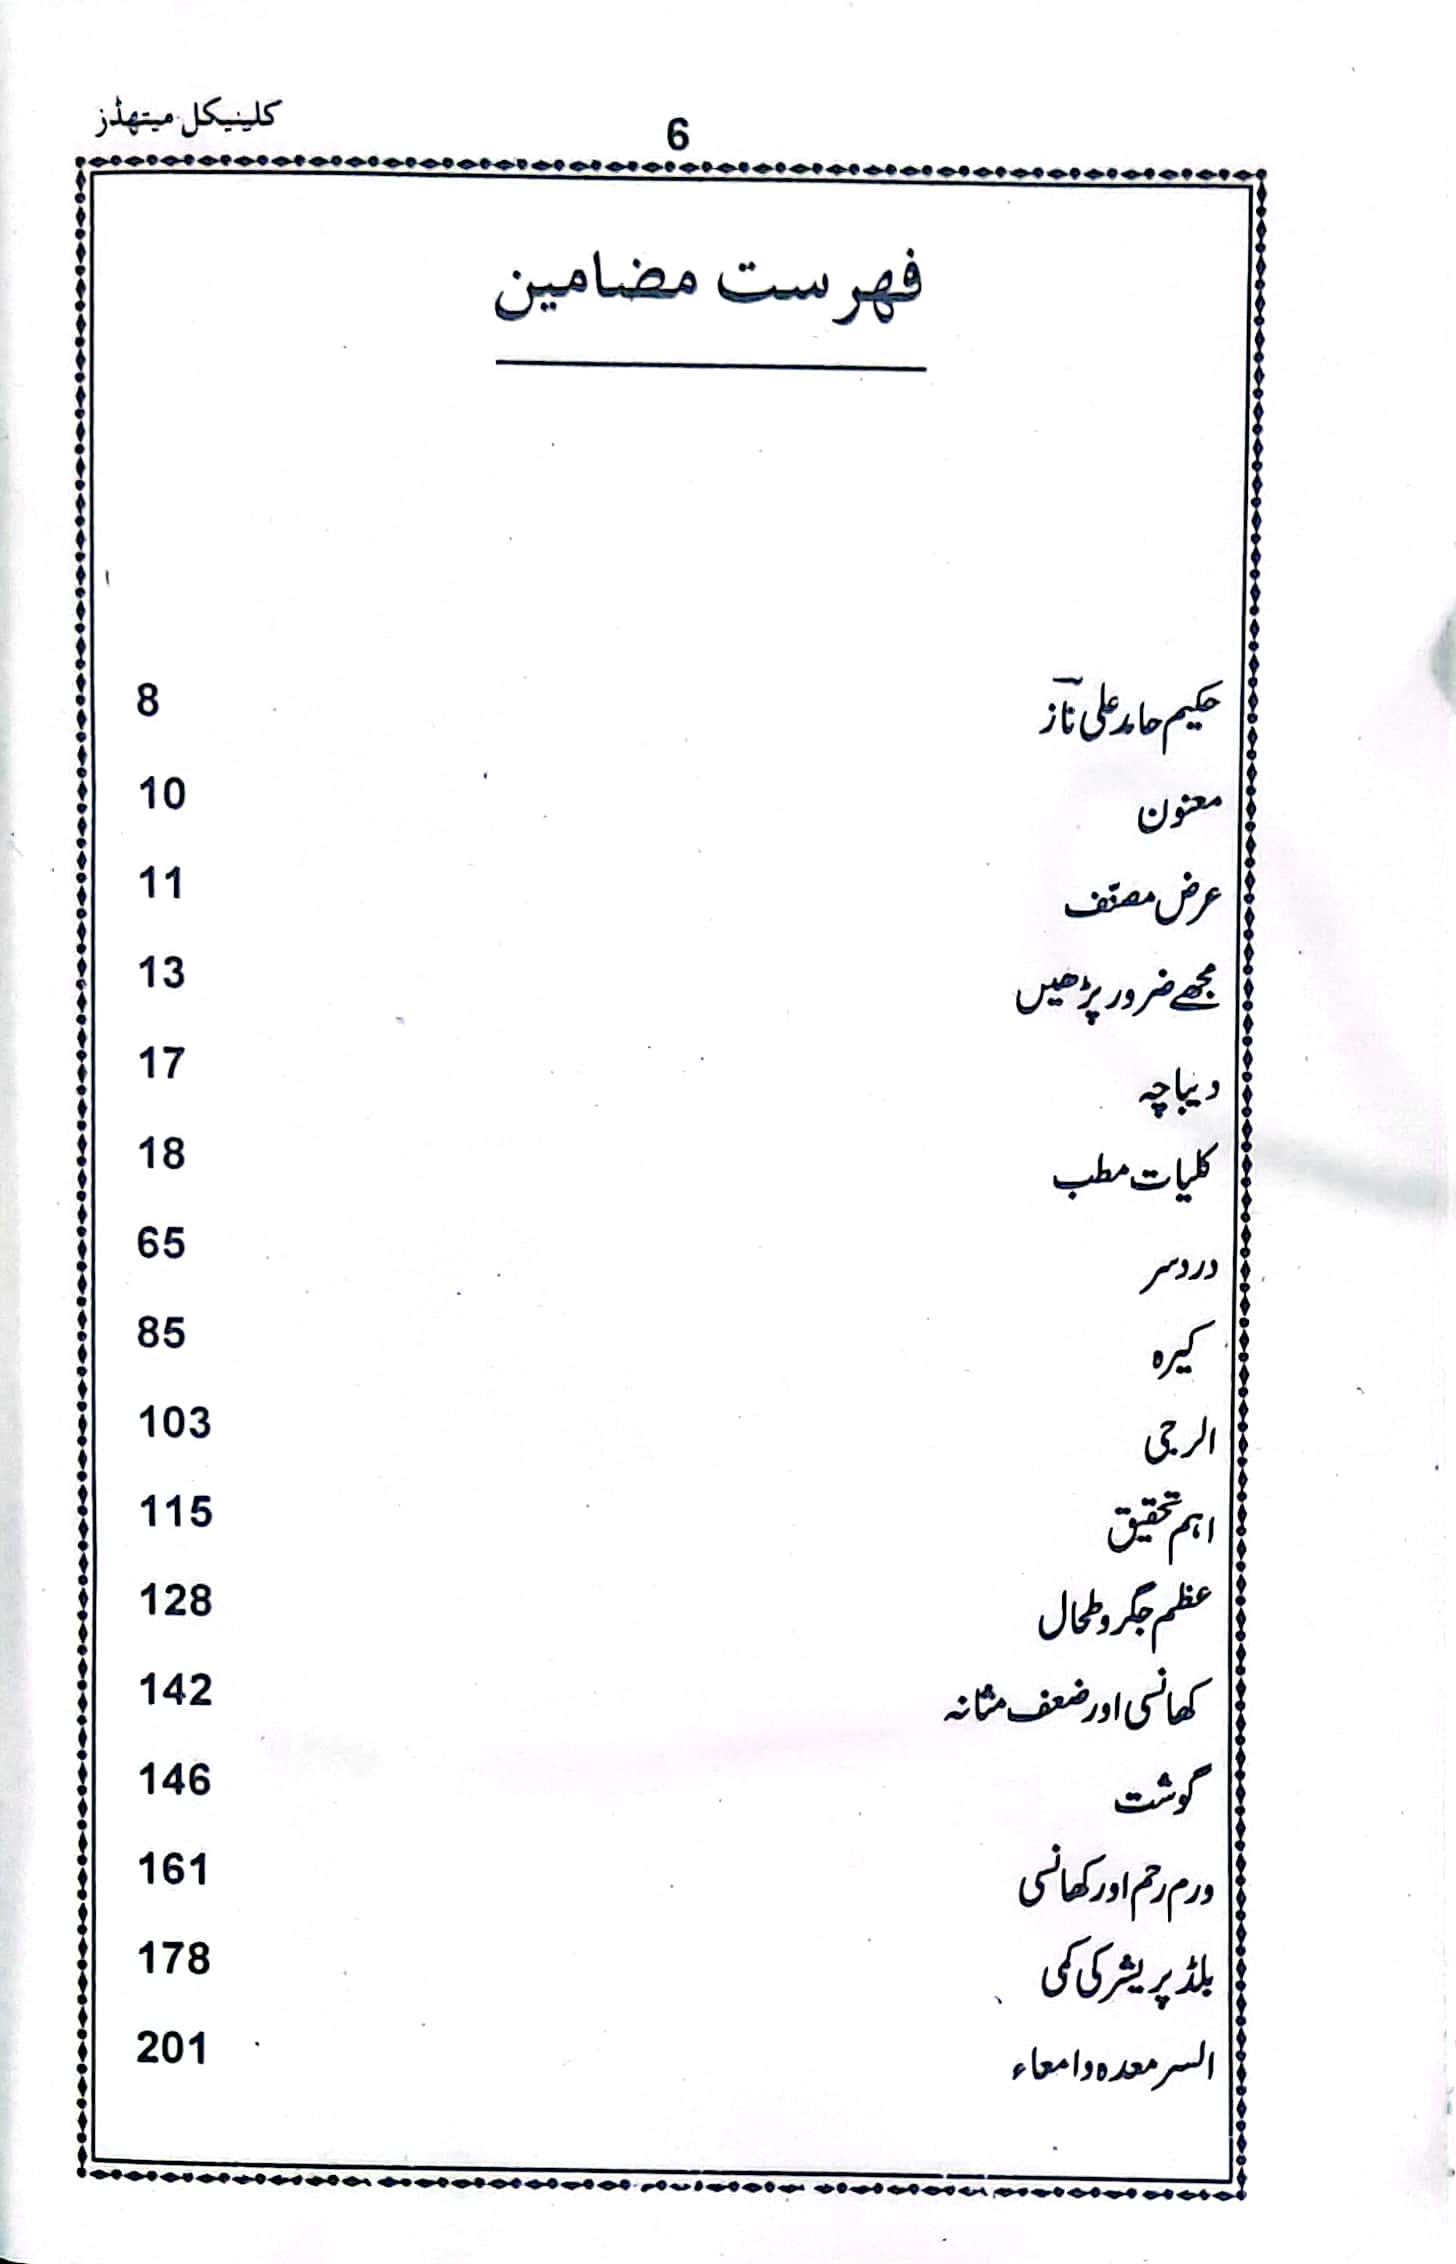 کلینیکل میتھڈز
6
فہرست مضامین
حکیم حامد علی نازؔ 8
معنون 10
عرض مصنّف 11
مجھے ضرور پڑھیں 13
دیباچہ 17
کلیات مطب 18
درد سر 65
کیرہ 85
الرجی 103
اہم تحقیق 115
عظم جگر و طحال 128
کھانسی اور ضعف مثانہ 142
گوشت 146
ورم رحم اور کھانسی 161
بلڈ پریشر کی کمی 178
السر معدہ و امعاء 201